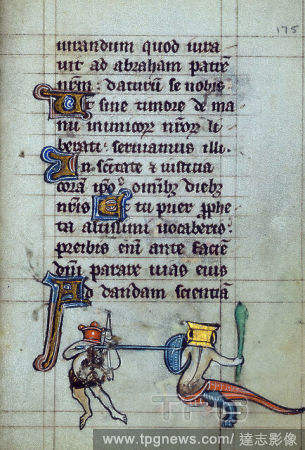 175
iurandum quod iura
uit ad abraham patrē
nr̄m: daturū se nobis
Ut sine timore de ma
nu inimicoꝝ nr̄oꝝ li
berati: seruiamus illi.
In sc̄itate ⁊ iusticia
corā ipo omībꝫ diebꝫ
nr̄is Et tu puer ꝓphe
ta altissimi uocaberis:
preibis enī ante faciē
dn̄i parare uias eius
Ad dandam scientiā
TPG
www.tpgnews.com/ 達志影像